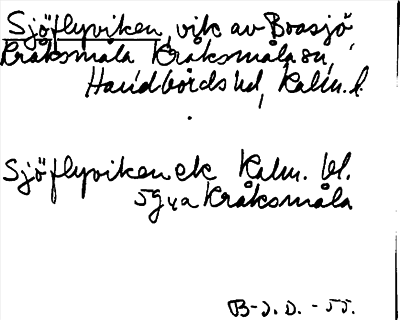 Sjöflyviken, vik av Boasjö
Kråksmåla Kråksmåla sn,
Handbörds hd, Kalm. l.
Sjöflyviken ek Kalm. bl.
5g4a Kråksmåla
B-J. D. - 55.